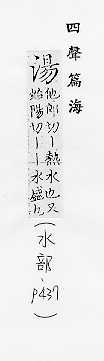 四聲篇海
湯
他郎切——熱水也又
始陽切——水盛皃
(水部、P437)